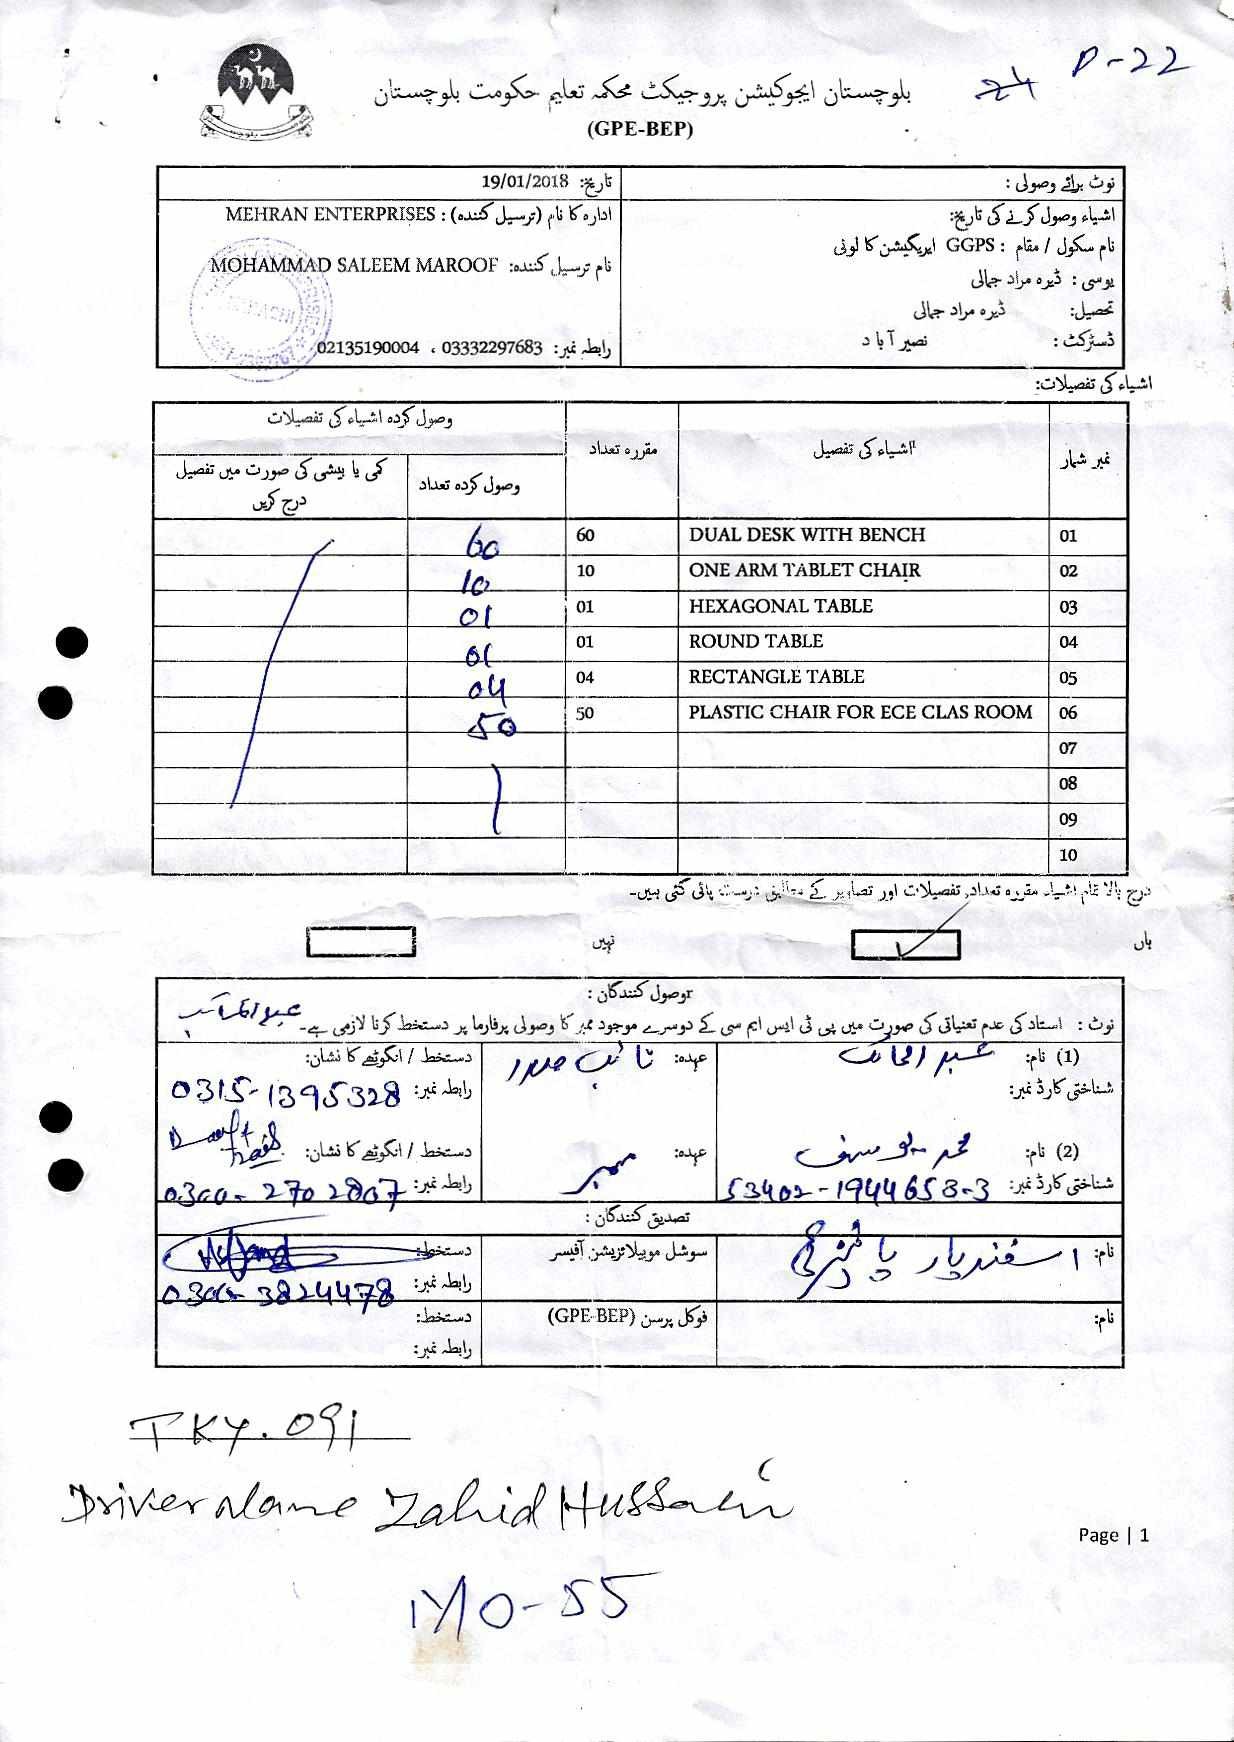 P-22
24
بلوچستان ایجوکیشن پروجیکٹ محکمہ تعلیم حکومت بلوچستان
(GPE-BEP)
نوٹ برائے وصولی :
تاریخ: 19/01/2018
اشیاء وصول کرنے کی تاریخ:
ادارہ کا نام (ترسیل کنندہ) : MEHRAN ENTERPRISES
نام سکول / مقام : GGPS ایریگیشن کالونی
نام ترسیل کنندہ: MOHAMMAD SALEEM MAROOF
یو سی : ڈیرہ مراد جمالی
تحصیل: ڈیرہ مراد جمالی
ڈسٹرکٹ : نصیر آباد
رابطہ نمبر: 03332297683 ، 02135190004
اشیاء کی تفصیلات:
نمبر شمار اشیاء کی تفصیل مقررہ تعداد وصول کردہ اشیاء کی تفصیلات
وصول کردہ تعداد کمی یا بیشی کی صورت میں تفصیل درج کریں
01 DUAL DESK WITH BENCH 60 60
02 ONE ARM TABLET CHAIR 10 10
03 HEXAGONAL TABLE 01 01
04 ROUND TABLE 01 01
05 RECTANGLE TABLE 04 04
06 PLASTIC CHAIR FOR ECE CLAS ROOM 50 50
07
08
09
10
درج بالا تمام اشیاء مقررہ تعداد, تفصیلات اور تصاویر کے مطابق درست پائی گئی ہیں۔
ہاں نہیں
وصول کنندگان :
نوٹ : استاد کی عدم تعیناتی کی صورت میں پی ٹی ایس ایم سی کے دوسرے موجود ممبر کا وصولی پرفارما پر دستخط کرنا لازمی ہے۔
(1) نام: عبد المالک عہدہ: نائب صدر دستخط / انگوٹھے کا نشان:
شناختی کارڈ نمبر: رابطہ نمبر: 0315-1395328
(2) نام: محمد یوسف عہدہ: ممبر دستخط / انگوٹھے کا نشان:
شناختی کارڈ نمبر: 53402-1944658-3 رابطہ نمبر: 0300-2702807
تصدیق کنندگان :
نام: اسفندیار سوشل موبیلائزیشن آفیسر دستخط:
رابطہ نمبر: 0300-3824478
نام: فوکل پرسن (GPE-BEP) دستخط:
رابطہ نمبر:
TKY.091
Driver Name Zahid Hussain
Page | 1